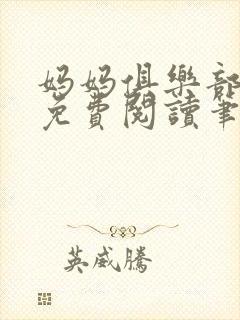 妈妈俱樂部
免費閱讀筆
英威騰